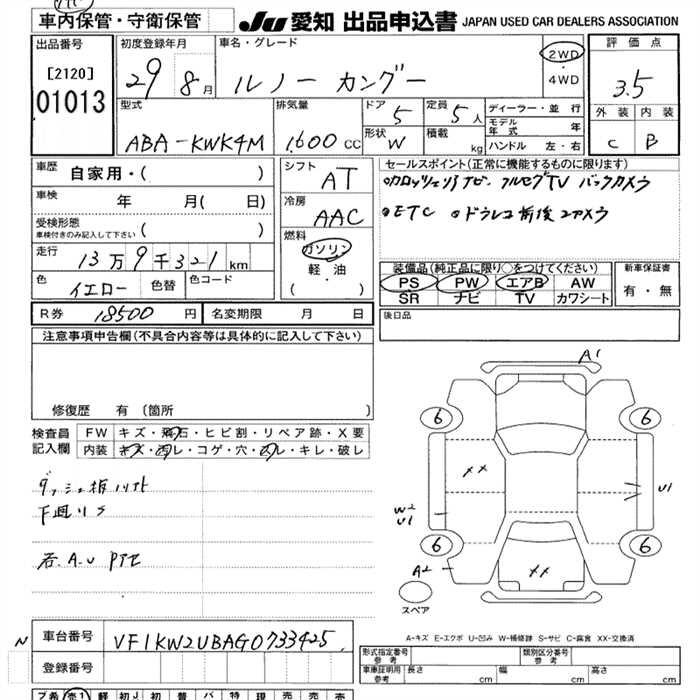 車内保管・守衛保管
JU 愛知 出品申込書 JAPAN USED CAR DEALERS ASSOCIATION
出品番号
[2120]
01013
初度登録年月
29 8月
車名・グレード
ルノー カングー
2WD
・
4WD
評価点
3.5
外装 内装
C B
型式
ABA-KWK4M
排気量
1,600 CC
ドア
5
定員
5人
形状
W
積載
kg
ディーラー・並行
モデル年式 年
ハンドル 左・右
車歴
自家用・( )
車検
年 月( 日)
受検形態
車検付きのみ記入して下さい
( )
走行
13万9千321km
色
イエロー
色替
色コード
シフト
AT
冷房
AAC
燃料
ガソリン
軽油
( ・ )
セールスポイント(正常に機能するものに限ります)
ナビ フルセグTV バックカメラ
ETC ドラレコ前後2カメラ
装備品(純正品に限り○をつけてください)
PS PW エアB AW
SR ナビ TV カワシート
新車保証書
有・無
R券 18500 円
名変期限 月 日
後日品
注意事項申告欄(不具合内容等は具体的に記入して下さい)
修復歴 有 (箇所 )
検査員記入欄
FW キズ・飛石・ヒビ割・リペア跡・X要
内装 キズ・汚レ・コゲ・穴・スレ・キレ・破レ
下廻りS
A'
6 6
XX
U1
W2
U1
6 6
A2
XX
スペア
A-キズ E-エクボ U-凹み W-補修跡 S-サビ C-腐食 XX-交換済
N
車台番号 VF1KW2UBAG0733425
登録番号
形式指定番号
参考
類別区分番号
参考
車庫証明用
参考
長さ cm 幅 cm 高さ cm